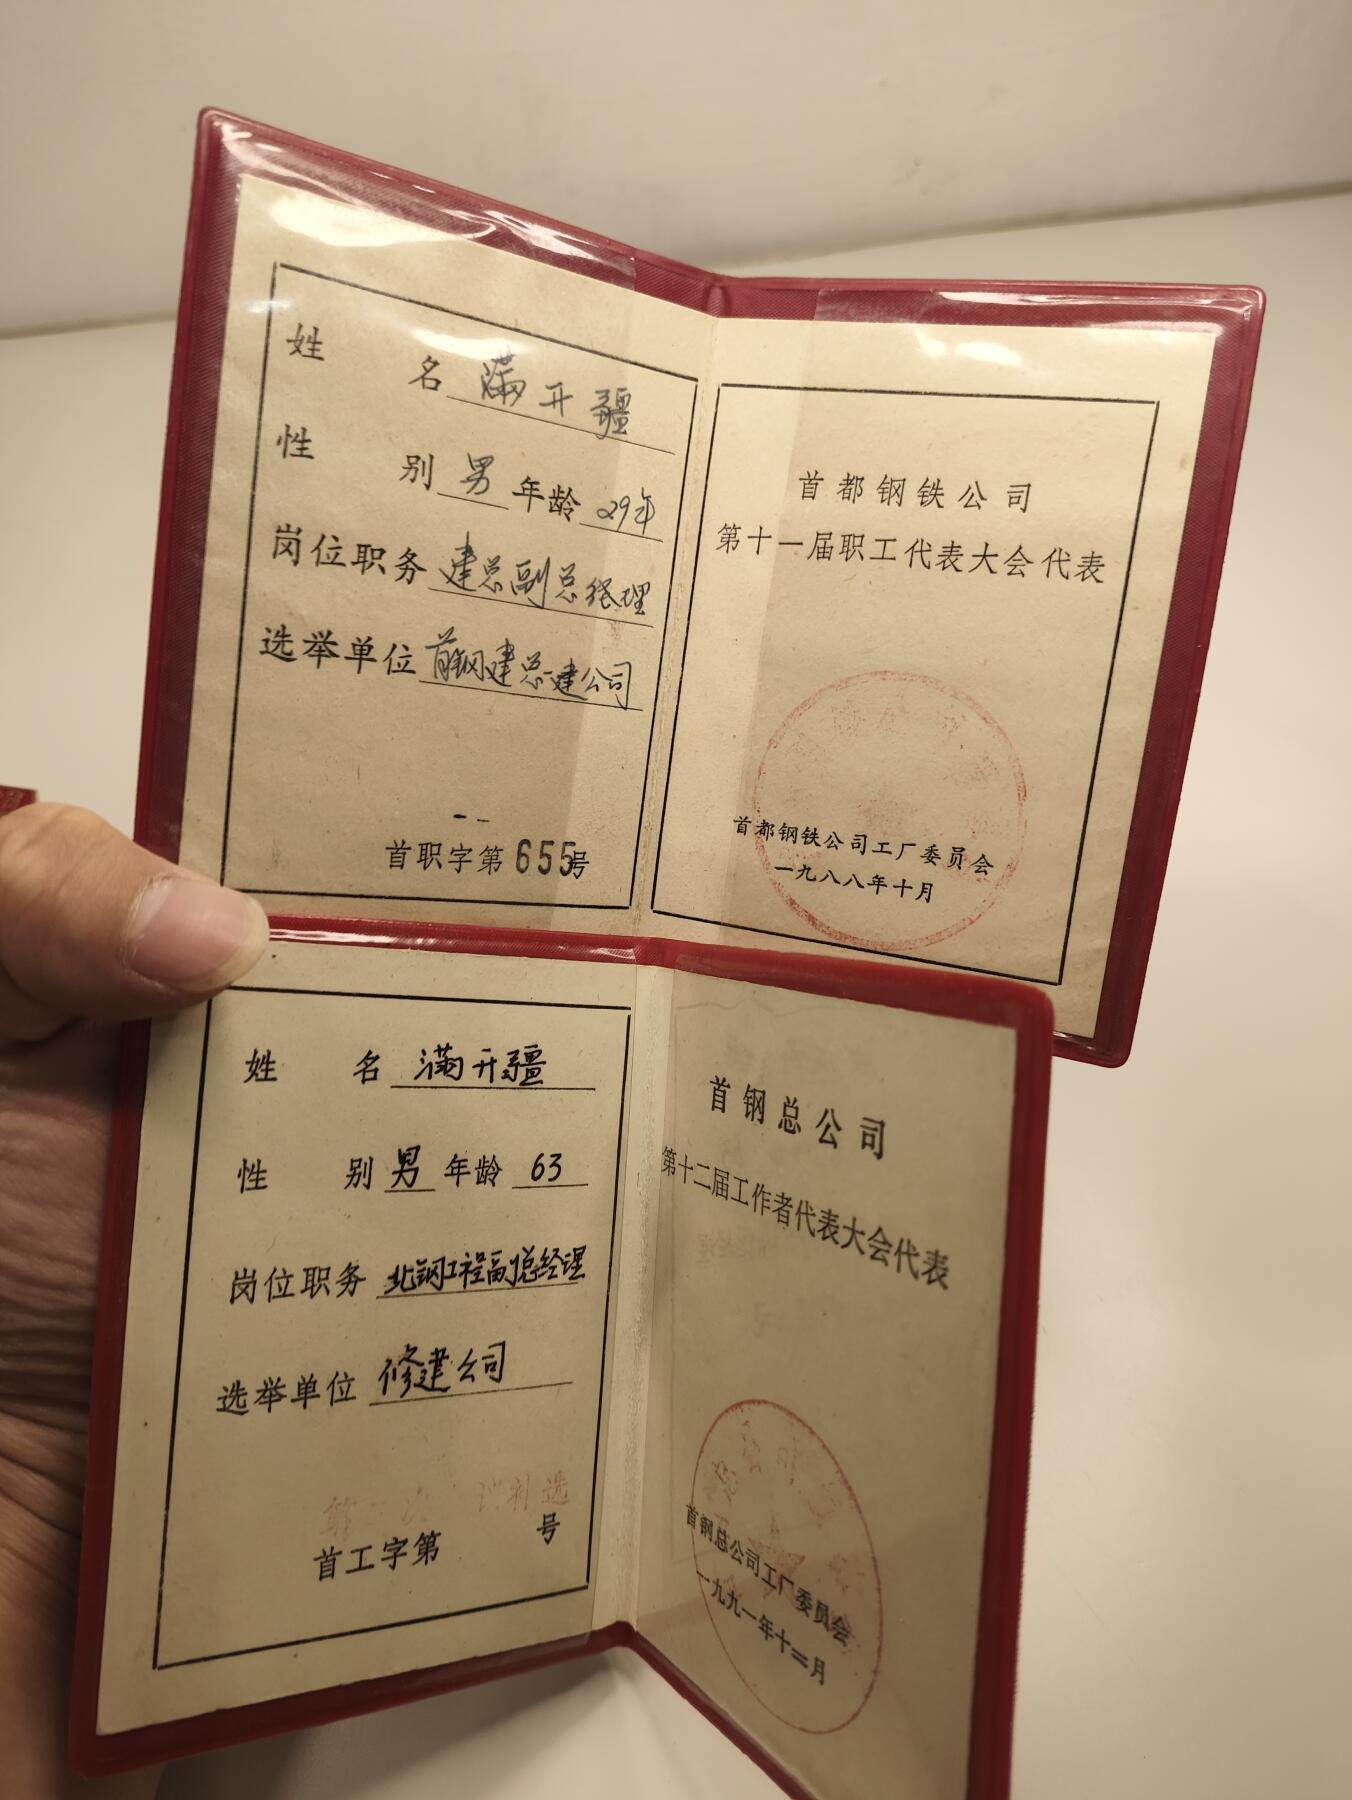 姓名 满开疆
性别 男 年龄 29年
岗位职务 建总副总经理
选举单位 首钢建总一建公司
首职字第655号
首都钢铁公司
第十一届职工代表大会代表
首都钢铁公司工厂委员会
一九八八年十月
姓名 满开疆
性别 男 年龄 63
岗位职务 北钢工程副总经理
选举单位 修建公司
补选
首工字第 号
首钢总公司
第十二届工作者代表大会代表
首钢总公司工厂委员会
一九九一年十二月